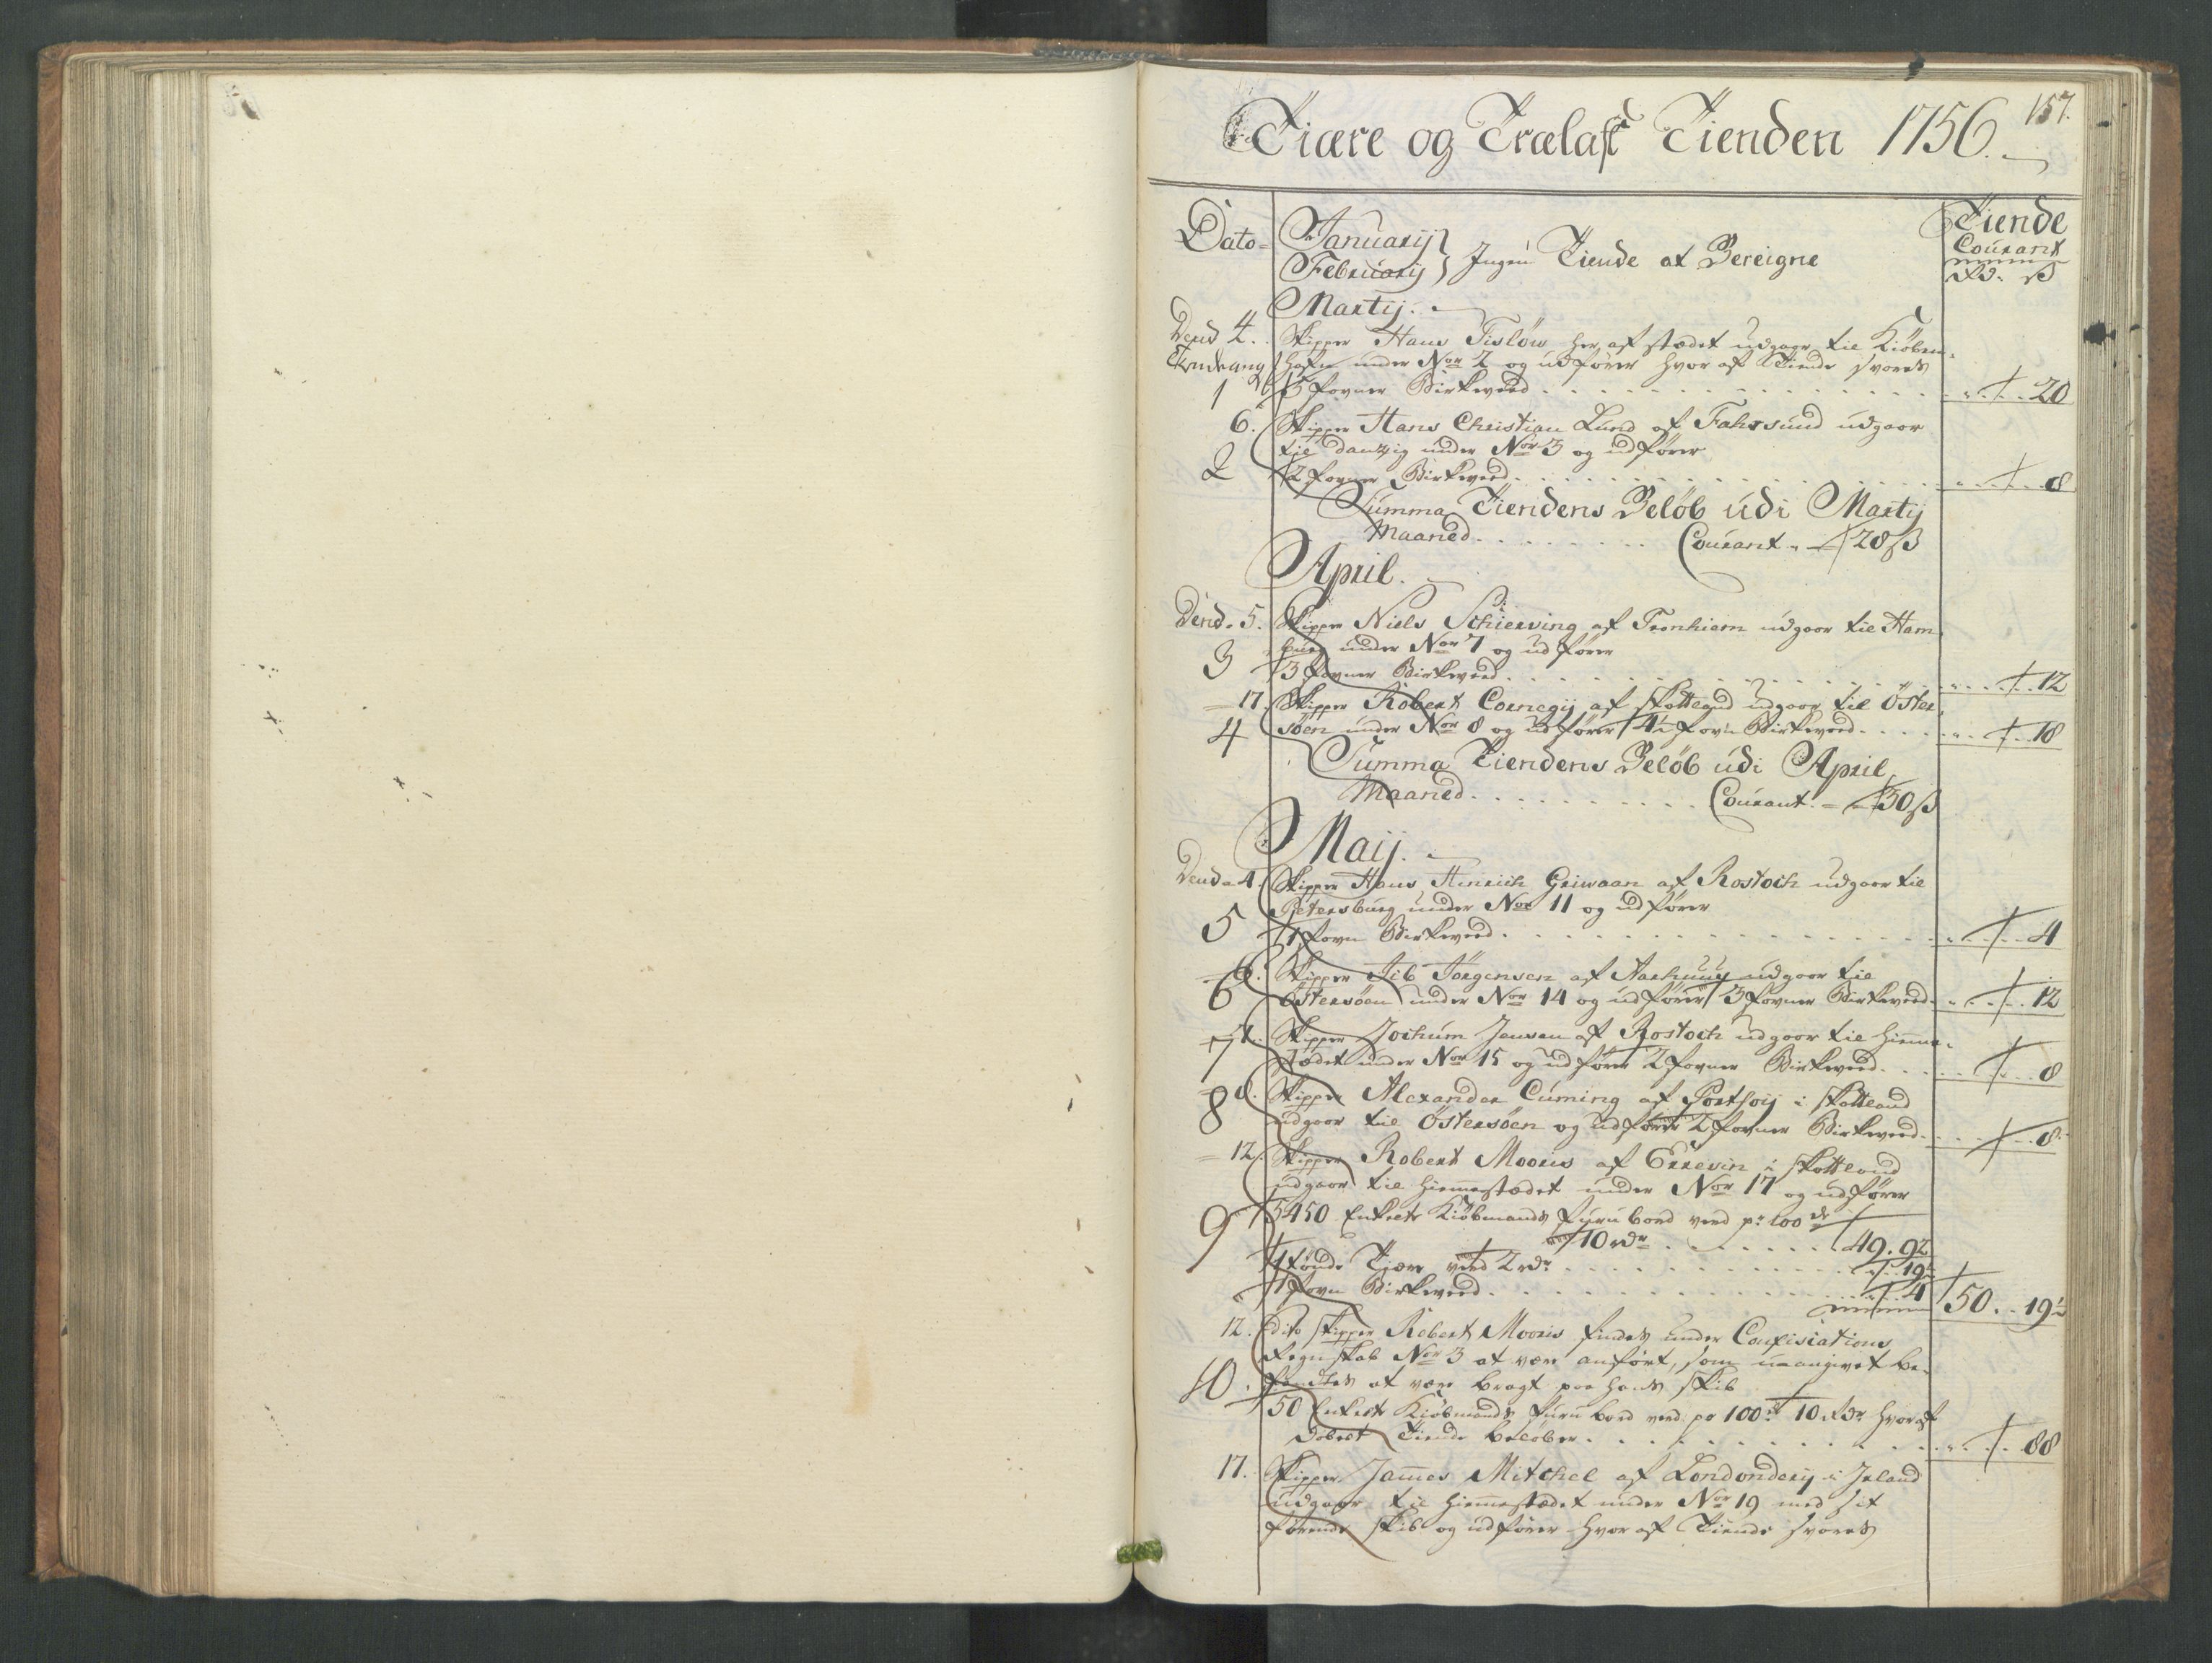 157.
Tiære og Trælast Tienden 1756.
Dato
Januarij
Februarij
Ingen Tiende at Bereigne
Tiende
Courant
Rd. ß
Martij.
Dend 4. Skipper Hans Fisløw her af stædet udgaar til Kiøben-
hafn under Nor 2 og udfører hvor af Tiende svares
1 5 fovner Birkeveed 20
6. Skipper Hans Christian Lund af Fahrsund udgaar
til dantzig under Nor 3 og udfører
2 2 fovner Birkeveed 8
Summa Tiendens Beløb udi Martij
Maaned Courant 28 ß
April.
Dend 5. Skipper Niels Schierving af Tronhiem udgaar til Ham-
burg under Nor 7 og udfører
3 3 fovner Birkeveed 12
17. Skipper Robert Cornegij af Skottland udgaar til Øster
4 søen under Nor 8 og udfører 4½ fovn Birkeveed 18
Summa Tiendens Beløb udi April
Maaned Courant 30 ß
Maij.
Dend 4. Skipper Hans Hinrich Griwaan af Rostoch udgaar til
Petersburg under Nor 11 og udfører
5 1 fovn Birkeveed 4
Skipper Jib Jørgensen af Aarhuus udgaar til
6 Østersøen under Nor 14 og udfører 3 fovner Birkeveed 12
Skipper Jochum Jensen af Rostoch udgaar til hiemme-
7 stædet under Nor 15 og udfører 2 fovner Birkeveed 8
Skipper Alexander Cuming af Portsoij i Skottland
8 udgaar til Østersøen og udfører 2 fovner Birkeveed 8
12. Skipper Robert Mooris af Errevin i Skottland
udgaar til hiemmestædet under Nor 17 og udfører
9 5450 Enkelte Kiøbmands furu bord verd pr 100 de
10 rdr 49. 92
1 tønde Tiære verd 2 rdr 19½
1 fovn Birkeveed 4
50. 19½
12. dito Skipper Robert Mooris findes under Confiscations
Regnskab Nor 3 at være anført, som uaangivet be-
10. fandtes at være bragt paa hans Skib
50 Enkelte Kiøbmands furu bord verd pr 100 de 10 rdr hvoraf
dobelt Tiende beløber 88
17. Skipper James Mitchel af Londonderij i Irland
udgaar til hiemmestædet under Nor 19 med sit
førende Skib og udfører hvor af Tiende svares